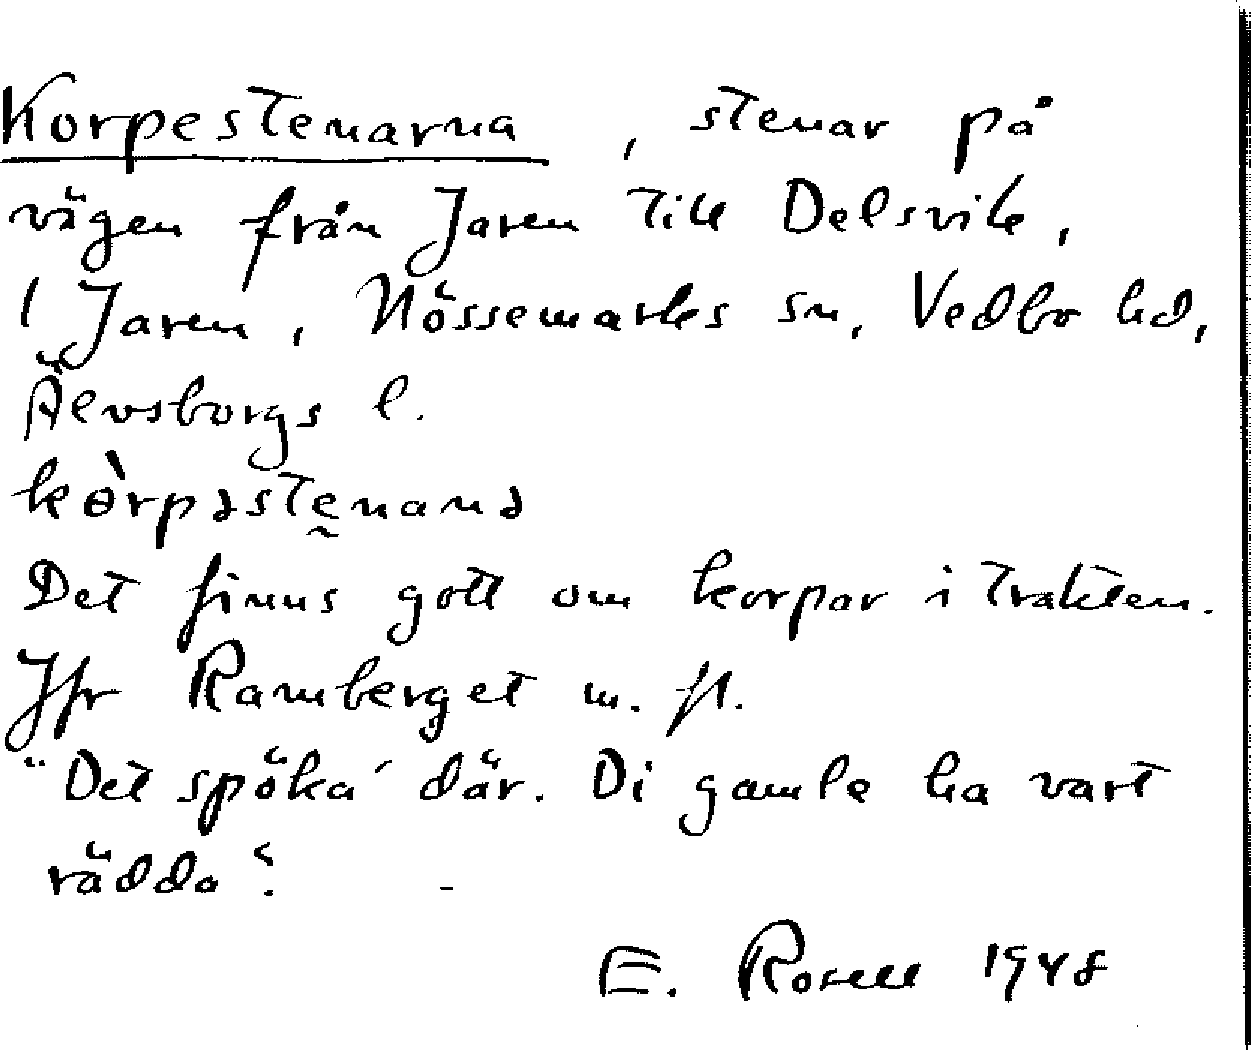 Korpestenarna, stenar på
vägen från Jaren till Delsvik,
i Jaren, Nössemarks sn, Vedbo hd,
Älvsborgs l.
kòrpəste̬nanə
Det finns gott om korpar i trakten.
Jfr Ramberget m. fl.
"Det spöka' där. Di gamle ha vart
rädda".
E. Rosell 1948